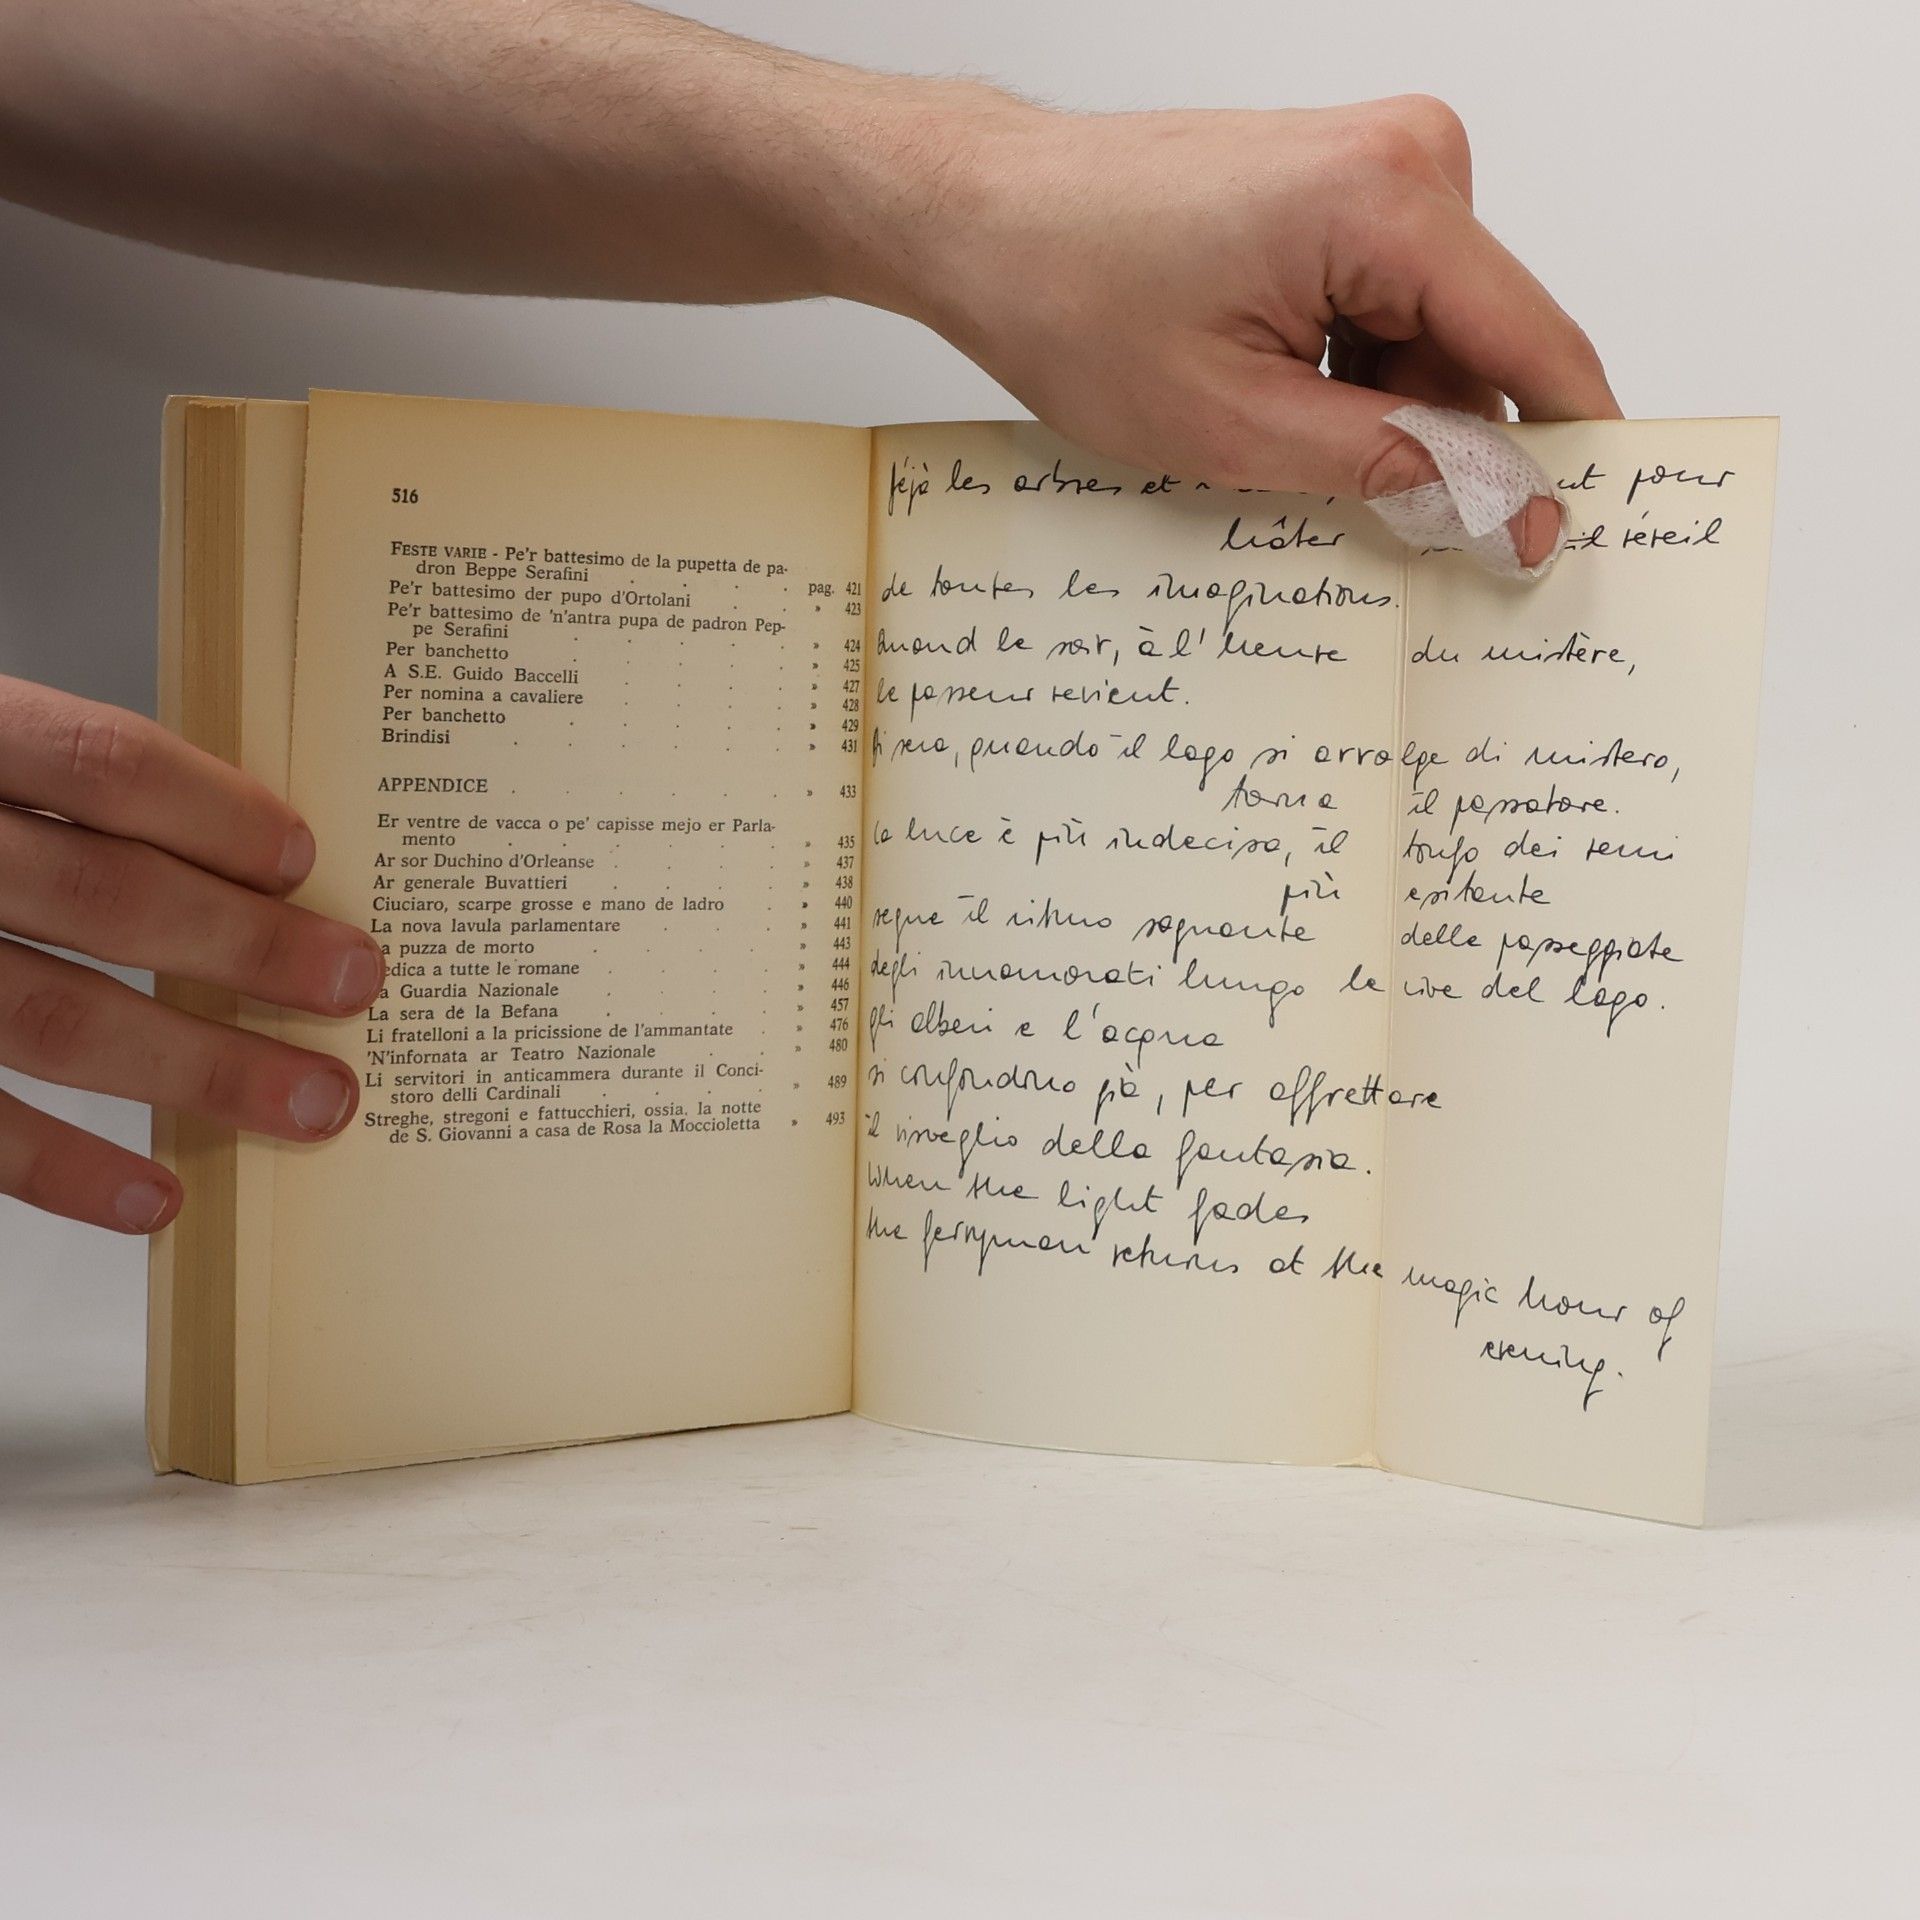 516
FESTE VARIE - Pe'r battesimo de la pupetta de pa-
dron Beppe Serafini . . . pag. 421
Pe'r battesimo der pupo d'Ortolani . . » 423
Pe'r battesimo de 'n'antra pupa de padron Pep-
pe Serafini . . . . » 424
Per banchetto . . . . » 425
A S.E. Guido Baccelli . . . . » 427
Per nomina a cavaliere . . . . » 428
Per banchetto . . . . » 429
Brindisi . . . . » 431
APPENDICE . . . . . . » 433
Er ventre de vacca o pe' capisse mejo er Parla-
mento . . . . . » 435
Ar sor Duchino d'Orleanse . . . . » 437
Ar generale Buvattieri . . . . » 438
Ciuciaro, scarpe grosse e mano de ladro . » 440
La nova lavula parlamentare . . . » 441
a puzza de morto . . . » 443
edica a tutte le romane . . . » 444
a Guardia Nazionale . . . » 446
La sera de la Befana . . . » 457
Li fratelloni a la pricissione de l'ammantate . » 476
'N'infornata ar Teatro Nazionale . . » 480
Li servitori in anticammera durante il Conci-
storo delli Cardinali . . . » 489
Streghe, stregoni e fattucchieri, ossia, la notte
de S. Giovanni a casa de Rosa la Moccioletta » 493
déjà les arbres et pour
hâter réveil
de toutes les imaginations.
Quand le soir, à l'heure du mistère,
le passeur revient.
Di sera, quando il lago si avvolge di mistero,
torna il passatore.
La luce è più indecisa, il tonfo dei remi
più esitante
segue il ritmo sognante delle passeggiate
degli innamorati lungo le rive del lago.
gli alberi e l'acqua
si confondono già, per affrettare
il risveglio della fantasia.
When the light fades
the ferryman returns at the magic hour of
evening.